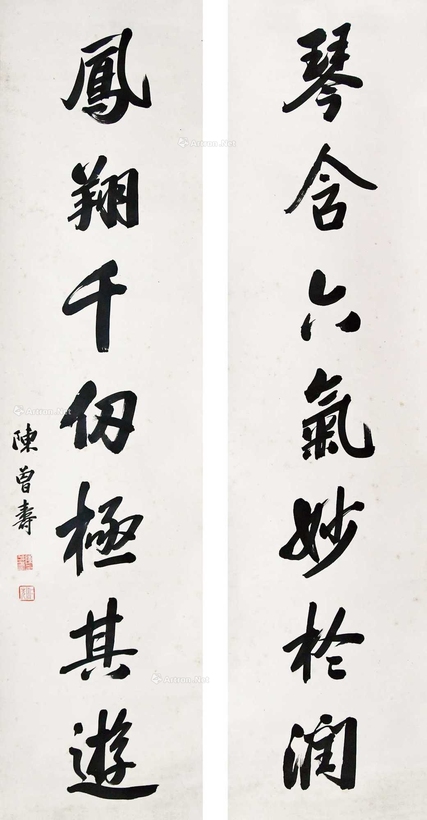 琴含六氣妙於潤
鳳翔千仞極其遊
陳曾壽
Artron.Net
Artron.Net
Artron.Net